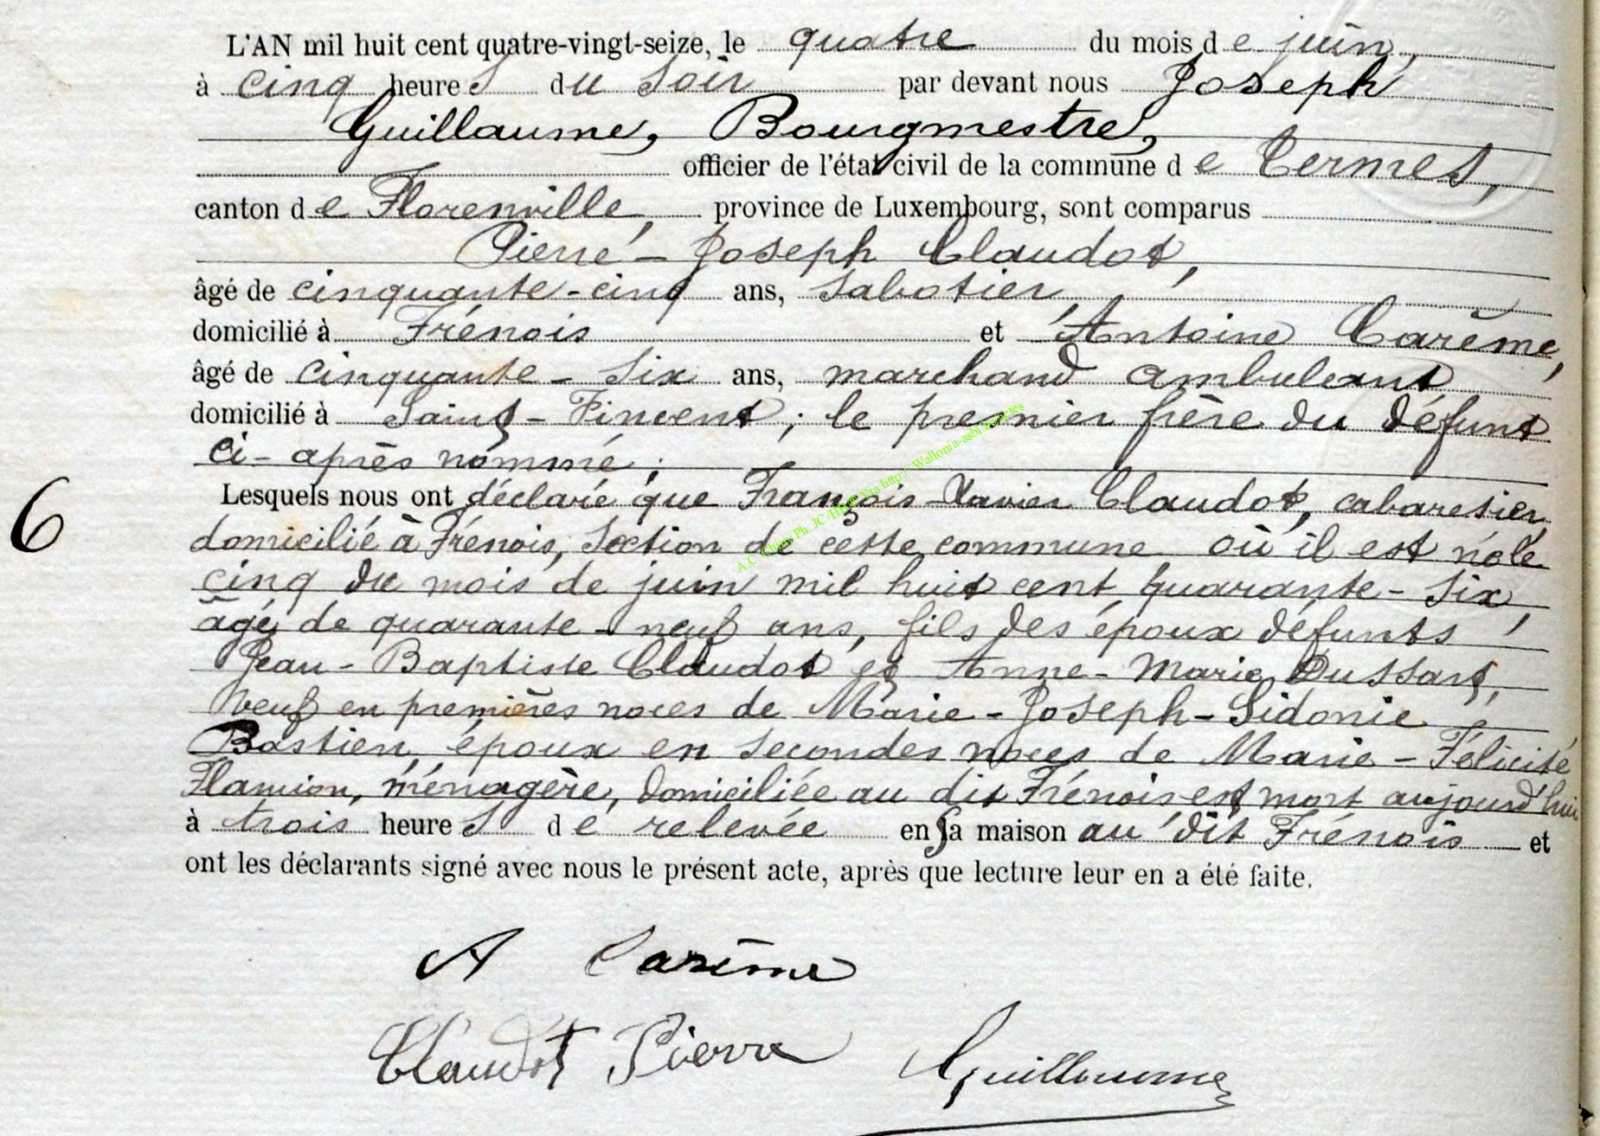 L'AN mil huit cent quatre-vingt-seize, le quatre du mois de juin,
à cinq heures du soir par devant nous Joseph
Guillaume, Bourgmestre,
officier de l'état civil de la commune de Termes,
canton de Florenville, province de Luxembourg, sont comparus
Pierre-Joseph Claudot,
âgé de cinquante-cinq ans, sabotier,
domicilié à Frénois et Antoine Carême,
âgé de cinquante-six ans, marchand ambulant
domicilié à Saint-Vincent; le premier frère du défunt
ci-après nommé;
6
Lesquels nous ont déclaré que François-Xavier Claudot, cabaretier,
domicilié à Frénois, Section de cette commune où il est né le
cinq du mois de juin mil huit cent quarante-six,
âgé de quarante-neuf ans, fils des époux défunts
Jean-Baptiste Claudot et Anne-Marie Dussart,
Veuf en premières noces de Marie-Joseph-Sidonie
Bastien, époux en secondes noces de Marie-Félicité
Flamion, ménagère, domiciliée au dit Frénois est mort aujourd'hui
à trois heures de relevée en sa maison au dit Frénois et
ont les déclarants signé avec nous le présent acte, après que lecture leur en a été faite.
A Carême
Claudot Pierre Guillaume